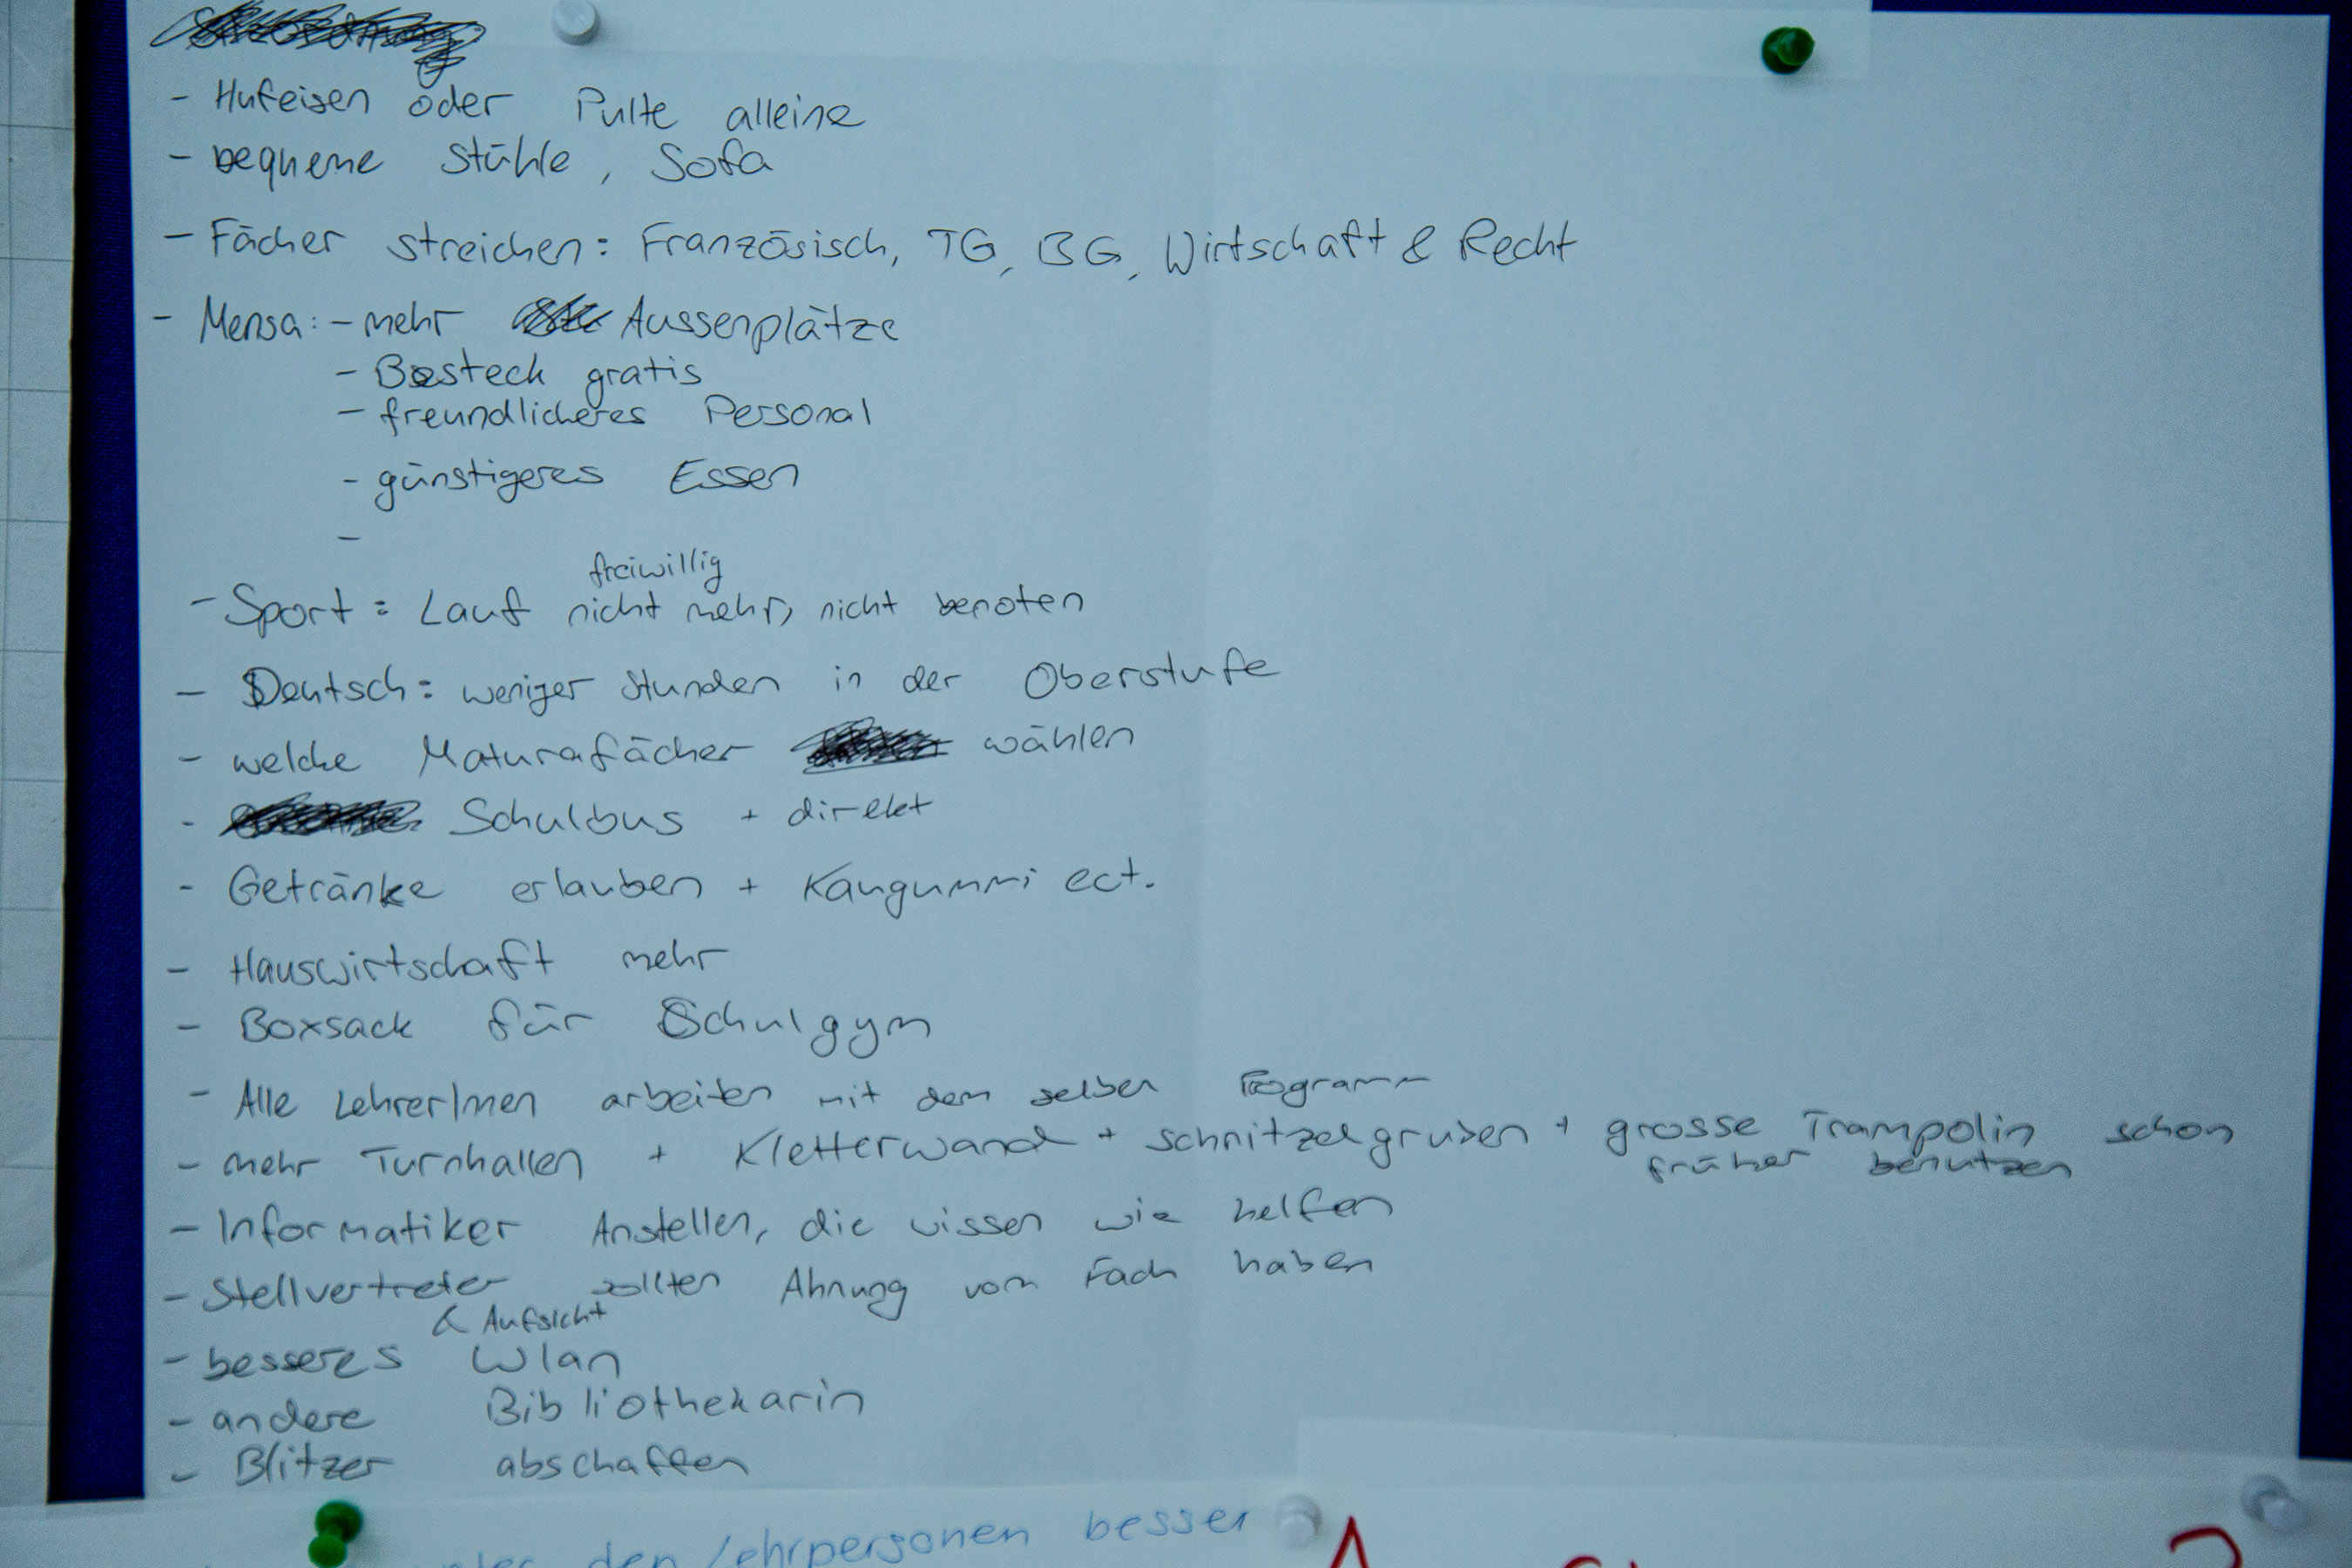 - Hufeisen oder Pulte alleine
- bequeme Stühle, Sofa
- Fächer streichen: Französisch, TG, BG, Wirtschaft & Recht
- Mensa: - mehr Aussenplätze
- Besteck gratis
- freundlicheres Personal
- günstigeres Essen
-
freiwillig
- Sport: Lauf nicht mehr, nicht benoten
- Deutsch: weniger Stunden in der Oberstufe
- welche Maturafächer wählen
- Schulbus + direkt
- Getränke erlauben + Kaugummi ect.
- Hauswirtschaft mehr
- Boxsack für Schulgym
- Alle LehrerInnen arbeiten mit dem selben Programm
- mehr Turnhallen + Kletterwand + schnitzelgruben + grosse Trampolin schon
früher benutzen
- Informatiker Anstellen, die wissen wie helfen
- Stellvertreter sollten Ahnung vom Fach haben
& Aufsicht
- besseres Wlan
- andere Bibliothekarin
- Blitzer abschaffen
den Lehrpersonen besser